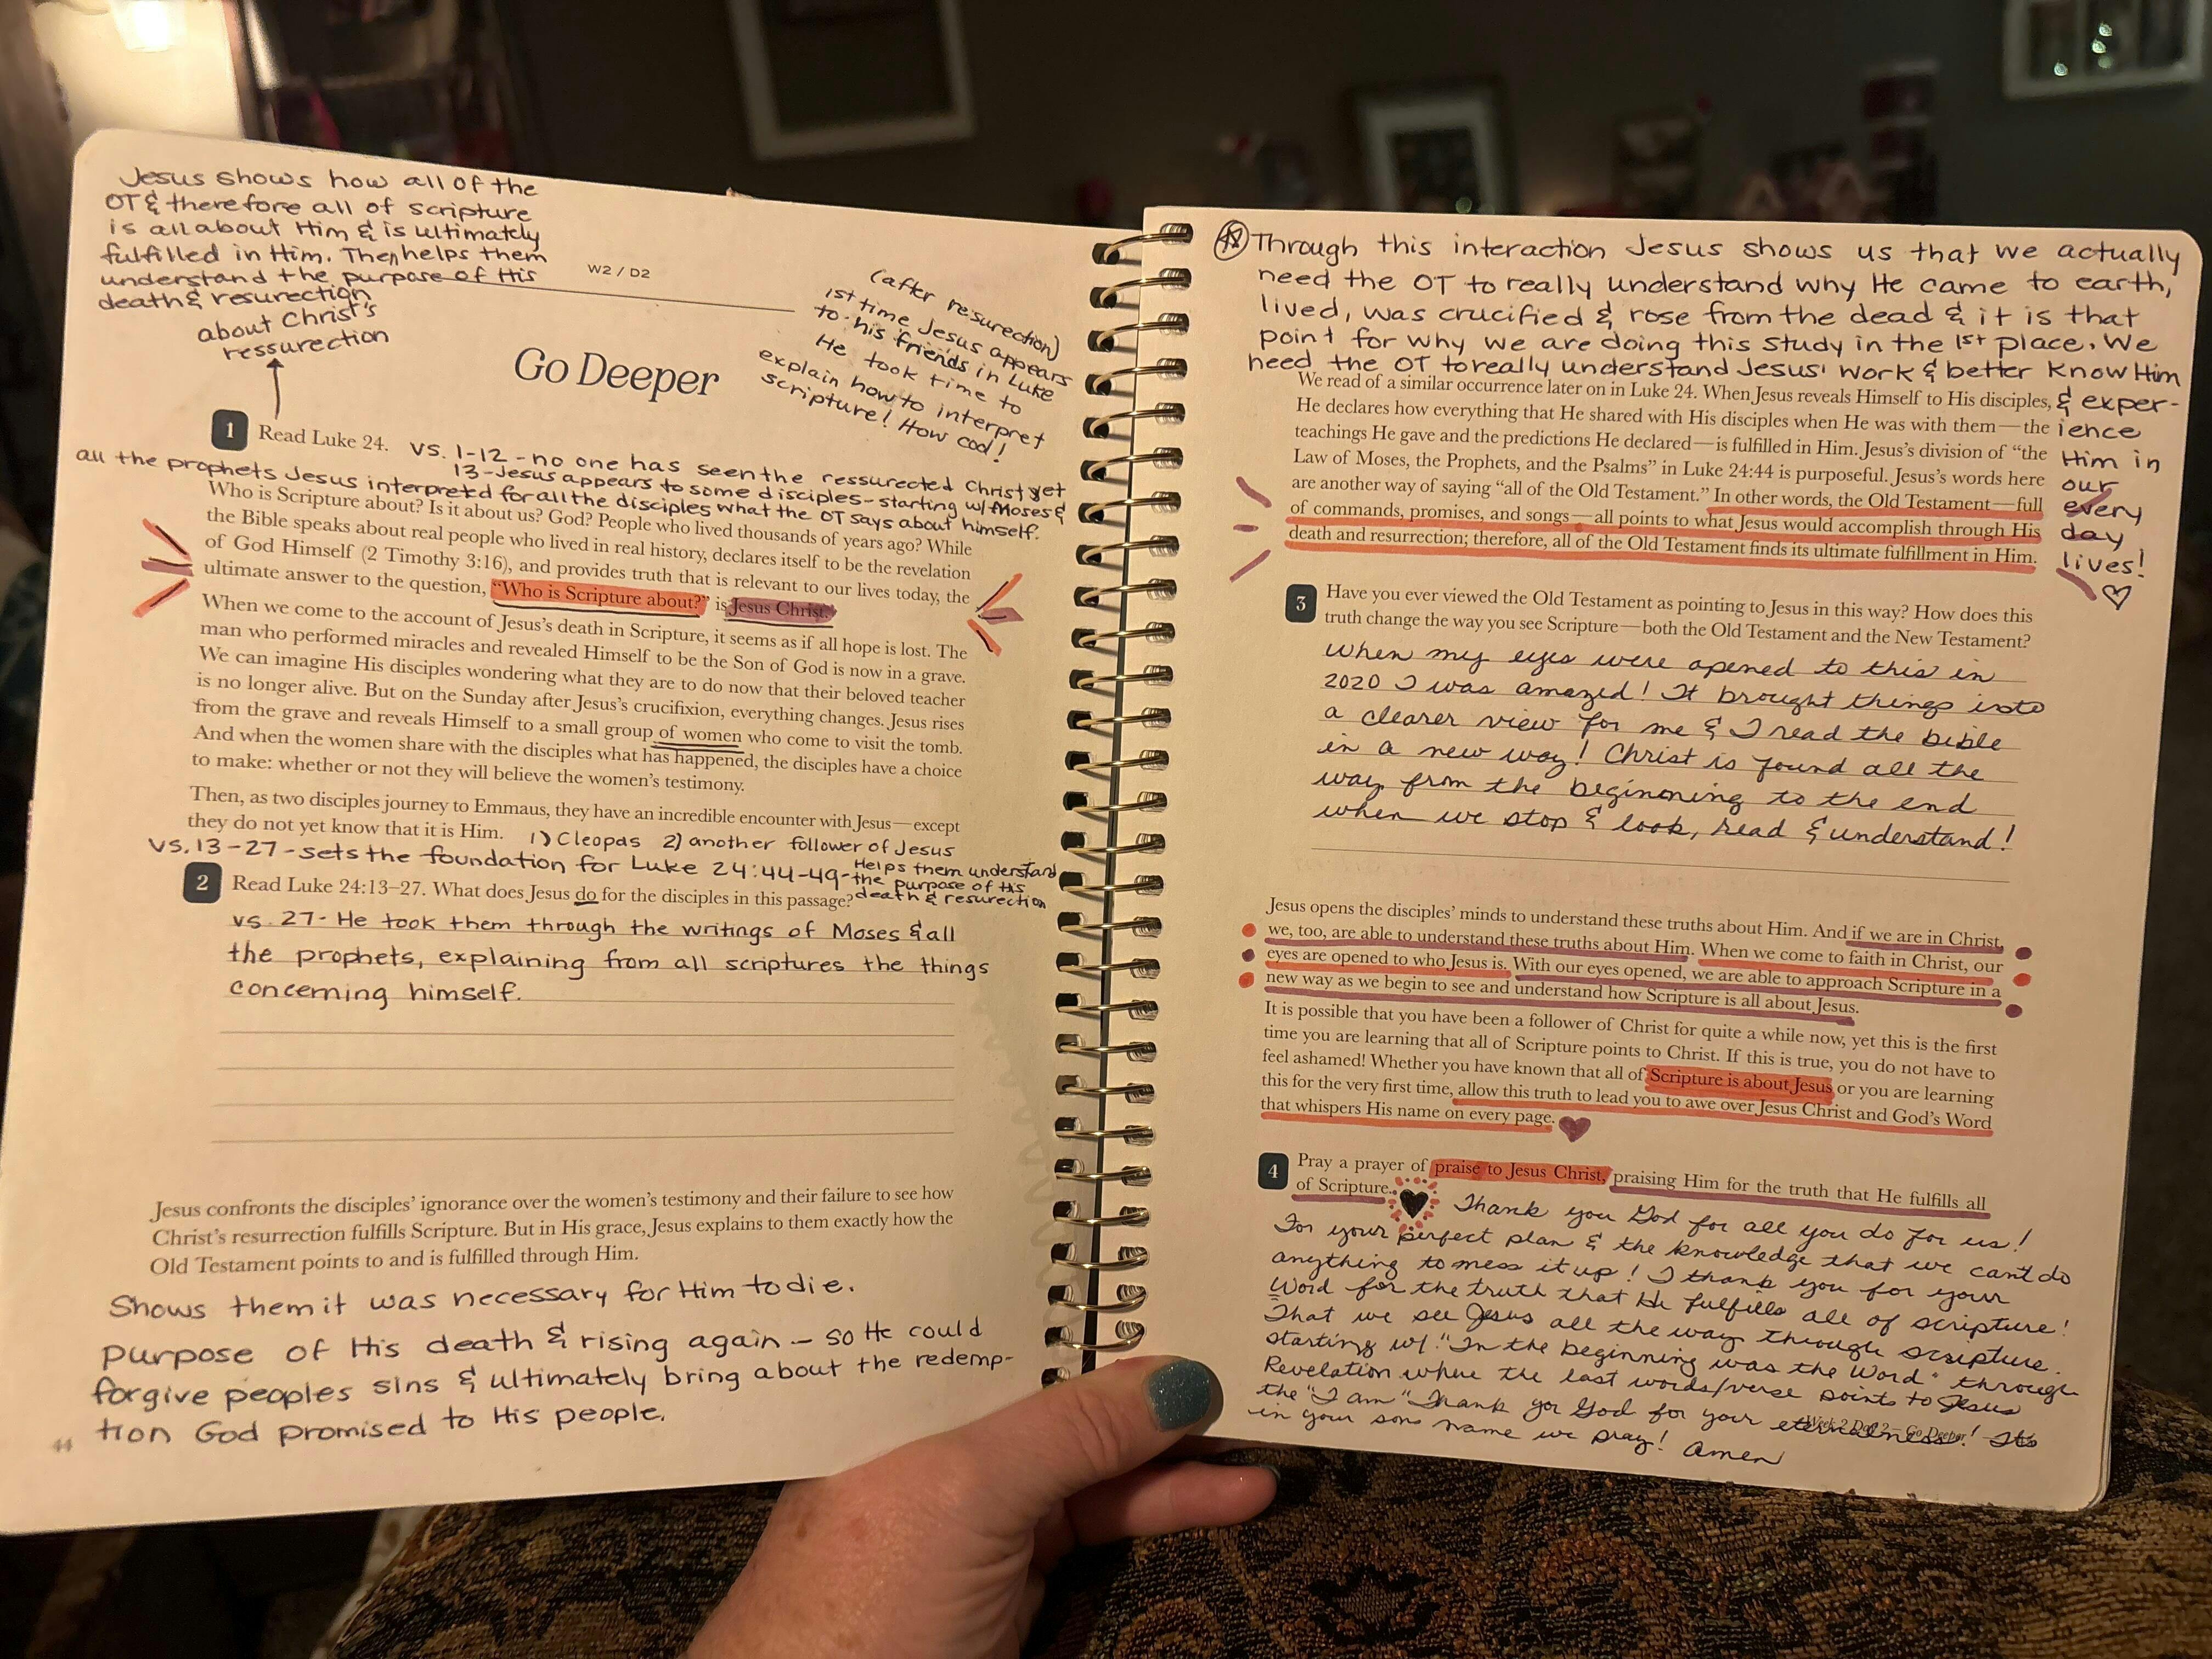 Jesus shows how all of the
OT & therefore all of scripture
is all about Him & is ultimately
fulfilled in Him. Then helps them
understand the purpose of His
death & resurection
about Christ's
ressurection
W2 / D2
(after resurection)
1st time Jesus appears
to his friends in Luke
He took time to
explain how to interpret
scripture! How cool!
Go Deeper
1 Read Luke 24. vs. 1-12 - no one has seen the ressurected Christ yet
13 - Jesus appears to some disciples - starting w/ Moses &
all the prophets Jesus interpreted for all the disciples what the OT says about himself.
Who is Scripture about? Is it about us? God? People who lived thousands of years ago? While
the Bible speaks about real people who lived in real history, declares itself to be the revelation
of God Himself (2 Timothy 3:16), and provides truth that is relevant to our lives today, the
ultimate answer to the question, "Who is Scripture about?" is Jesus Christ.
When we come to the account of Jesus's death in Scripture, it seems as if all hope is lost. The
man who performed miracles and revealed Himself to be the Son of God is now in a grave.
We can imagine His disciples wondering what they are to do now that their beloved teacher
is no longer alive. But on the Sunday after Jesus's crucifixion, everything changes. Jesus rises
from the grave and reveals Himself to a small group of women who come to visit the tomb.
And when the women share with the disciples what has happened, the disciples have a choice
to make: whether or not they will believe the women's testimony.
Then, as two disciples journey to Emmaus, they have an incredible encounter with Jesus—except
they do not yet know that it is Him. 1) Cleopas 2) another follower of Jesus
vs. 13-27 - sets the foundation for Luke 24:44-49 - Helps them understand
the purpose of His
death & resurection
2 Read Luke 24:13–27. What does Jesus do for the disciples in this passage?
vs. 27 - He took them through the writings of Moses & all
the prophets, explaining from all scriptures the things
concerning himself.
Jesus confronts the disciples' ignorance over the women's testimony and their failure to see how
Christ's resurrection fulfills Scripture. But in His grace, Jesus explains to them exactly how the
Old Testament points to and is fulfilled through Him.
Shows them it was necessary for Him to die.
Purpose of His death & rising again - so He could
forgive peoples sins & ultimately bring about the redemp-
tion God promised to His people.
44
Through this interaction Jesus shows us that we actually
need the OT to really understand why He came to earth,
lived, was crucified & rose from the dead & it is that
point for why we are doing this study in the 1st place. We
need the OT to really understand Jesus' work & better know Him
& exper-
ience
Him in
our
every
day
lives!
We read of a similar occurrence later on in Luke 24. When Jesus reveals Himself to His disciples,
He declares how everything that He shared with His disciples when He was with them—the
teachings He gave and the predictions He declared—is fulfilled in Him. Jesus's division of "the
Law of Moses, the Prophets, and the Psalms" in Luke 24:44 is purposeful. Jesus's words here
are another way of saying "all of the Old Testament." In other words, the Old Testament—full
of commands, promises, and songs—all points to what Jesus would accomplish through His
death and resurrection; therefore, all of the Old Testament finds its ultimate fulfillment in Him.
3 Have you ever viewed the Old Testament as pointing to Jesus in this way? How does this
truth change the way you see Scripture—both the Old Testament and the New Testament?
When my eyes were opened to this in
2020 I was amazed! It brought things into
a clearer view for me & I read the bible
in a new way! Christ is found all the
way from the beginning to the end
when we stop & look, read & understand!
Jesus opens the disciples' minds to understand these truths about Him. And if we are in Christ,
we, too, are able to understand these truths about Him. When we come to faith in Christ, our
eyes are opened to who Jesus is. With our eyes opened, we are able to approach Scripture in a
new way as we begin to see and understand how Scripture is all about Jesus.
It is possible that you have been a follower of Christ for quite a while now, yet this is the first
time you are learning that all of Scripture points to Christ. If this is true, you do not have to
feel ashamed! Whether you have known that all of Scripture is about Jesus or you are learning
this for the very first time, allow this truth to lead you to awe over Jesus Christ and God's Word
that whispers His name on every page.
4 Pray a prayer of praise to Jesus Christ, praising Him for the truth that He fulfills all
of Scripture.
Thank you God for all you do for us!
For your perfect plan & the knowledge that we cant do
anything to mess it up! I thank you for your
Word for the truth that He fulfills all of scripture!
That we see Jesus all the way through scripture.
starting w/ "In the beginning was the Word" through
Revelation where the last words/verse point to Jesus
the "I am" Thank you God for your eternalness! Its
in your sons name we pray! Amen
Week 2 Day 2 – Go Deeper